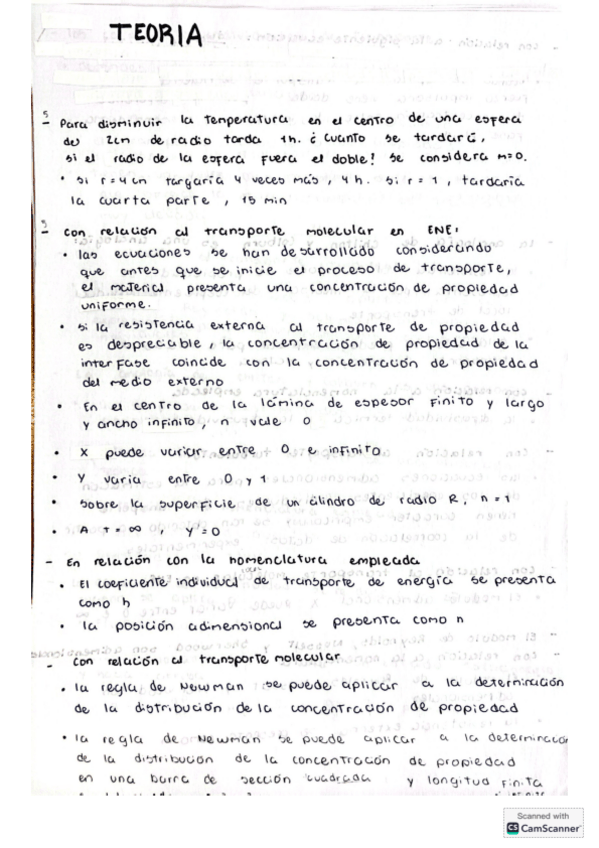 TEORIA
5 Para disminuir la temperatura en el centro de una esfera
de 2cm de radio tarda 1h. ¿ Cuanto se tardará,
si el radio de la esfera fuera el doble? Se considera m=0.
• Si r=4cm targaría 4 veces más, 4h. Si r=1, tardaría
la cuarta parte, 15 min
5 con relación al transporte molecular en ENE:
• las ecuaciones se han desarrollado considerando
que antes que se inicie el proceso de transporte,
el material presenta una concentración de propiedad
uniforme.
• si la resistencia externa al transporte de propiedad
es despreciable, la concentración de propiedad de la
interfase coincide con la concentración de propiedad
del medio externo
• En el centro de la lámina de espesor finito y largo
y ancho infinito, n vale 0
• X puede variar entre 0 e infinito
• Y varia entre 0 y 1
• sobre la superficie de un cilindro de radio R, n=1
• A t=∞, Y=0
- En relación con la nomenclatura empleada
• El coeficiente individual de transporte de energía se presenta
como h
• la posición adimensional se presenta como n
- con relación al transporte molecular
• la regla de Newman se puede aplicar a la determinación
de la distribución de la concentración de propiedad
• la regla de Newman se puede aplicar a la determinación
de la distribución de la concentración de propiedad
en una barra de sección cuadrada y longitud finita
Scanned with
CS CamScanner